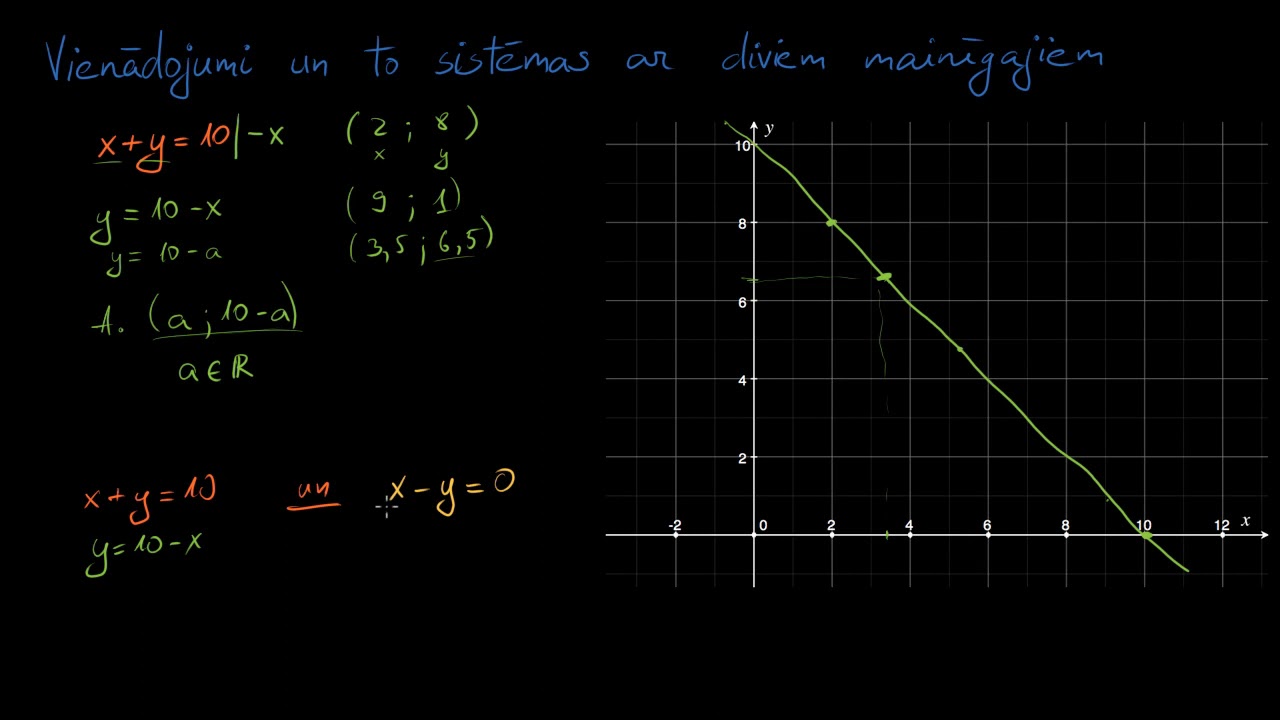 Vienādojumi un to sistēmas ar diviem mainīgajiem
x+y=10|-x
(2 ; 8)
x y
y=10-x
(9 ; 1)
y=10-a
(3,5 ; 6,5)
A. (a ; 10-a)
a∈ℝ
x+y=10 un x-y=0
y=10-x
y
10
8
6
4
2
-2 0 2 4 6 8 10 12 x